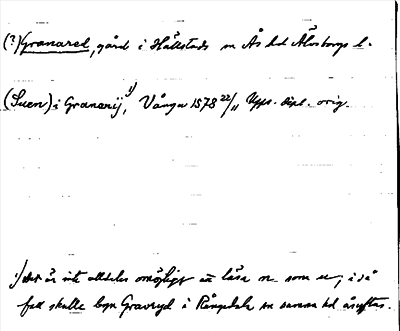 (?) Granared, gård i Hällstads sn Ås hd Älvsborgs l.
(Suen) i Granarij, 1) Vånga 1578 22/11 Upps. dipl. orig.
1) det är icke alldeles omöjligt att läsa n som u, i så
fall skulle byn Gravryd i Rångedala sn samma hd åsyftas.